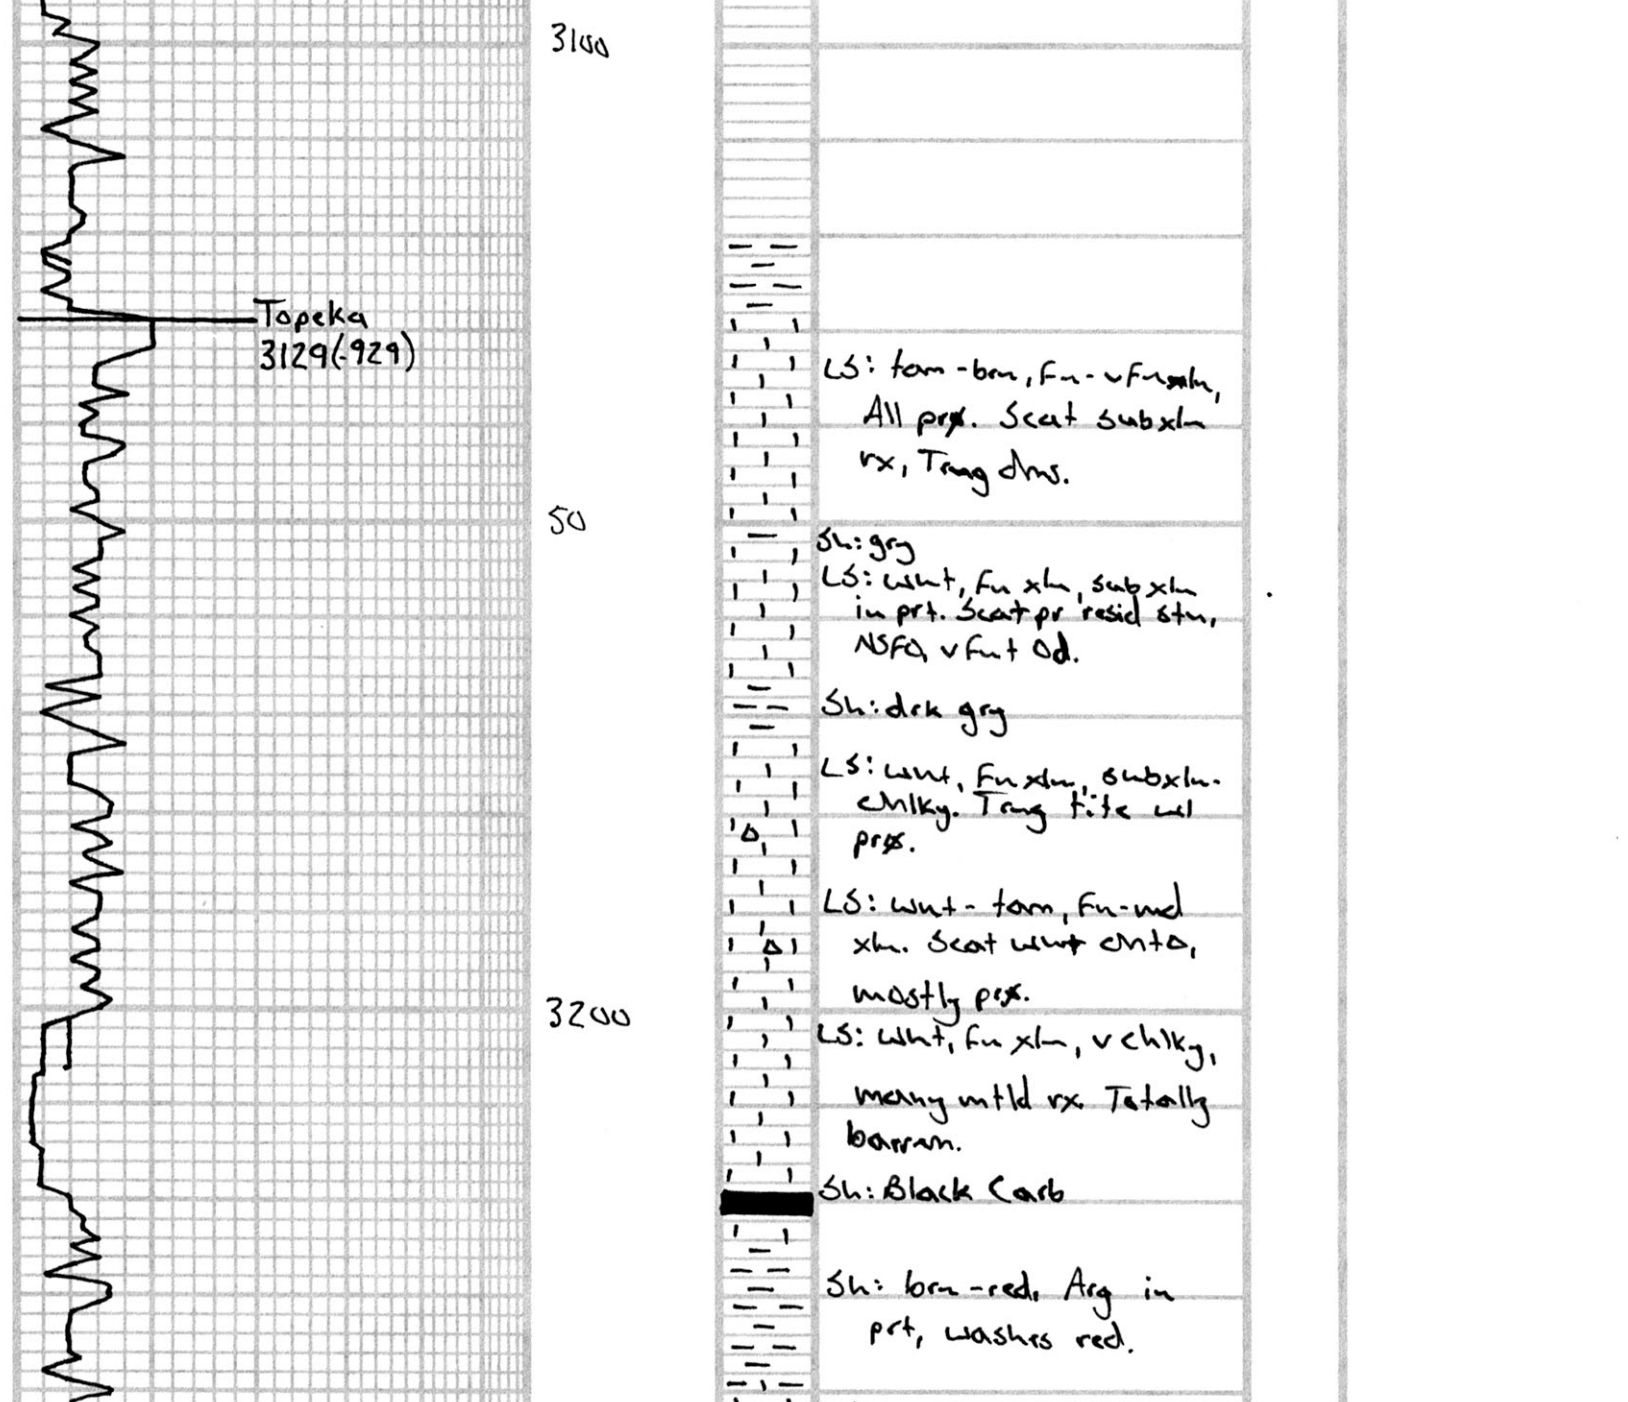 3100
Topeka
3129(-929)
LS: tan-brn, fn-vfnxln,
All prø. Scat subxln
rx, Trng dns.
50
Sh: gry
LS: wht, fn xln, subxln
in prt. Scat pr resid stn,
NSFO, v fnt Od.
Sh: drk gry
LS: wht, fn xln, subxln-
chlky. Trng tite w/
prø.
LS: wht - tan, fn-md
xln. Scat wht cht∆,
mostly prø.
3200
LS: wht, fn xln, v chlky,
many mtld rx. Totally
barren.
Sh: Black Carb
Sh: brn-red, Arg in
prt, washes red.